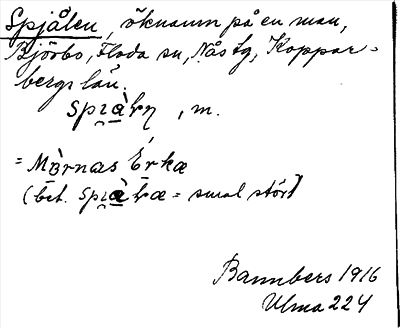 Spjålen, öknamn på en man,
Björbo, Floda sn, Nås tg, Koppar-
bergs län.
, m.
= Mōrnas Erkæ
(bet. = smal stör)
Bannbers 1916
Ulma 224